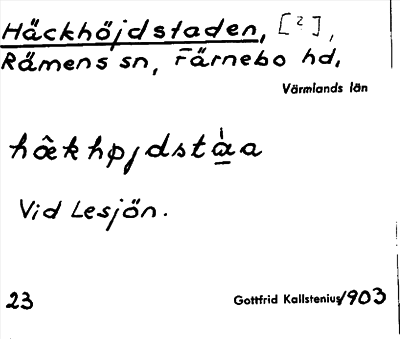 Häckhöjdstaden, [²],
Rämens sn, Färnebo hd,
Värmlands län
hœ̂khøjdstàa
Vid Lesjön.
23 Gottfrid Kallstenius 1903